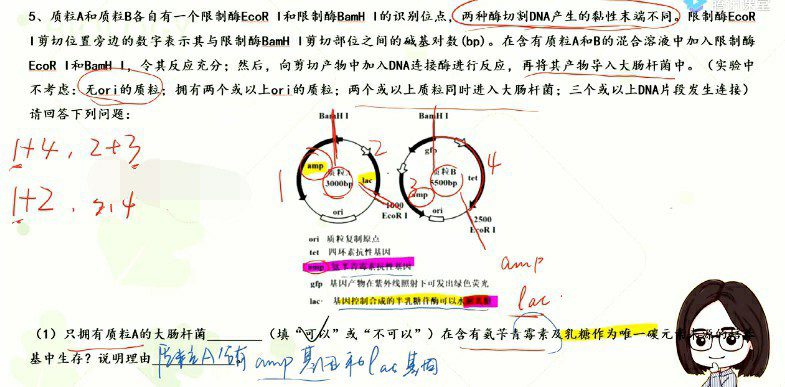 5、质粒A和质粒B各自有一个限制酶EcoR I和限制酶BamH I的识别位点，两种酶切割DNA产生的黏性末端不同。限制酶EcoR
I剪切位置旁边的数字表示其与限制酶BamH I剪切部位之间的碱基对数(bp)。在含有质粒A和B的混合溶液中加入限制酶
EcoR I和BamH I，令其反应充分；然后，向剪切产物中加入DNA连接酶进行反应，再将其产物导入大肠杆菌中。（实验中
不考虑：无ori的质粒；拥有两个或以上ori的质粒；两个或以上质粒同时进入大肠杆菌；三个或以上DNA片段发生连接）
请回答下列问题：
1+4，2+3
1+2
BamH I
BamH I
1
2
amp
质粒A
3000bp
lac
ori
1000
EcoR I
gfp
4
3
质粒B
5500bp
tet
amp
ori
2500
EcoR I
ori 质粒复制原点
tet 四环素抗性基因
amp 氨苄青霉素抗性基因
gfp 基因产物在紫外线照射下可发出绿色荧光
lac 基因控制合成的半乳糖苷酶可以水解乳糖
amp
lac
（1）只拥有质粒A的大肠杆菌______（填“可以”或“不可以”）在含有氨苄青霉素及乳糖作为唯一碳元素来源的培养
基中生存？说明理由
质粒A含有amp基因和lac基因